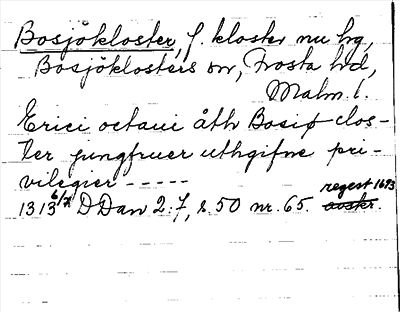 Bosjökloster, f. kloster nu hg,
Bosjöklosters sn, Frosta hd,
Malm. l.
Erici octaui åth Bosiø clos-
ter jungfruer uthgifne pri-
vilegier -----
1313 6/7 DDan 2:7, s. 50 nr. 65. regest 1693 avskr.